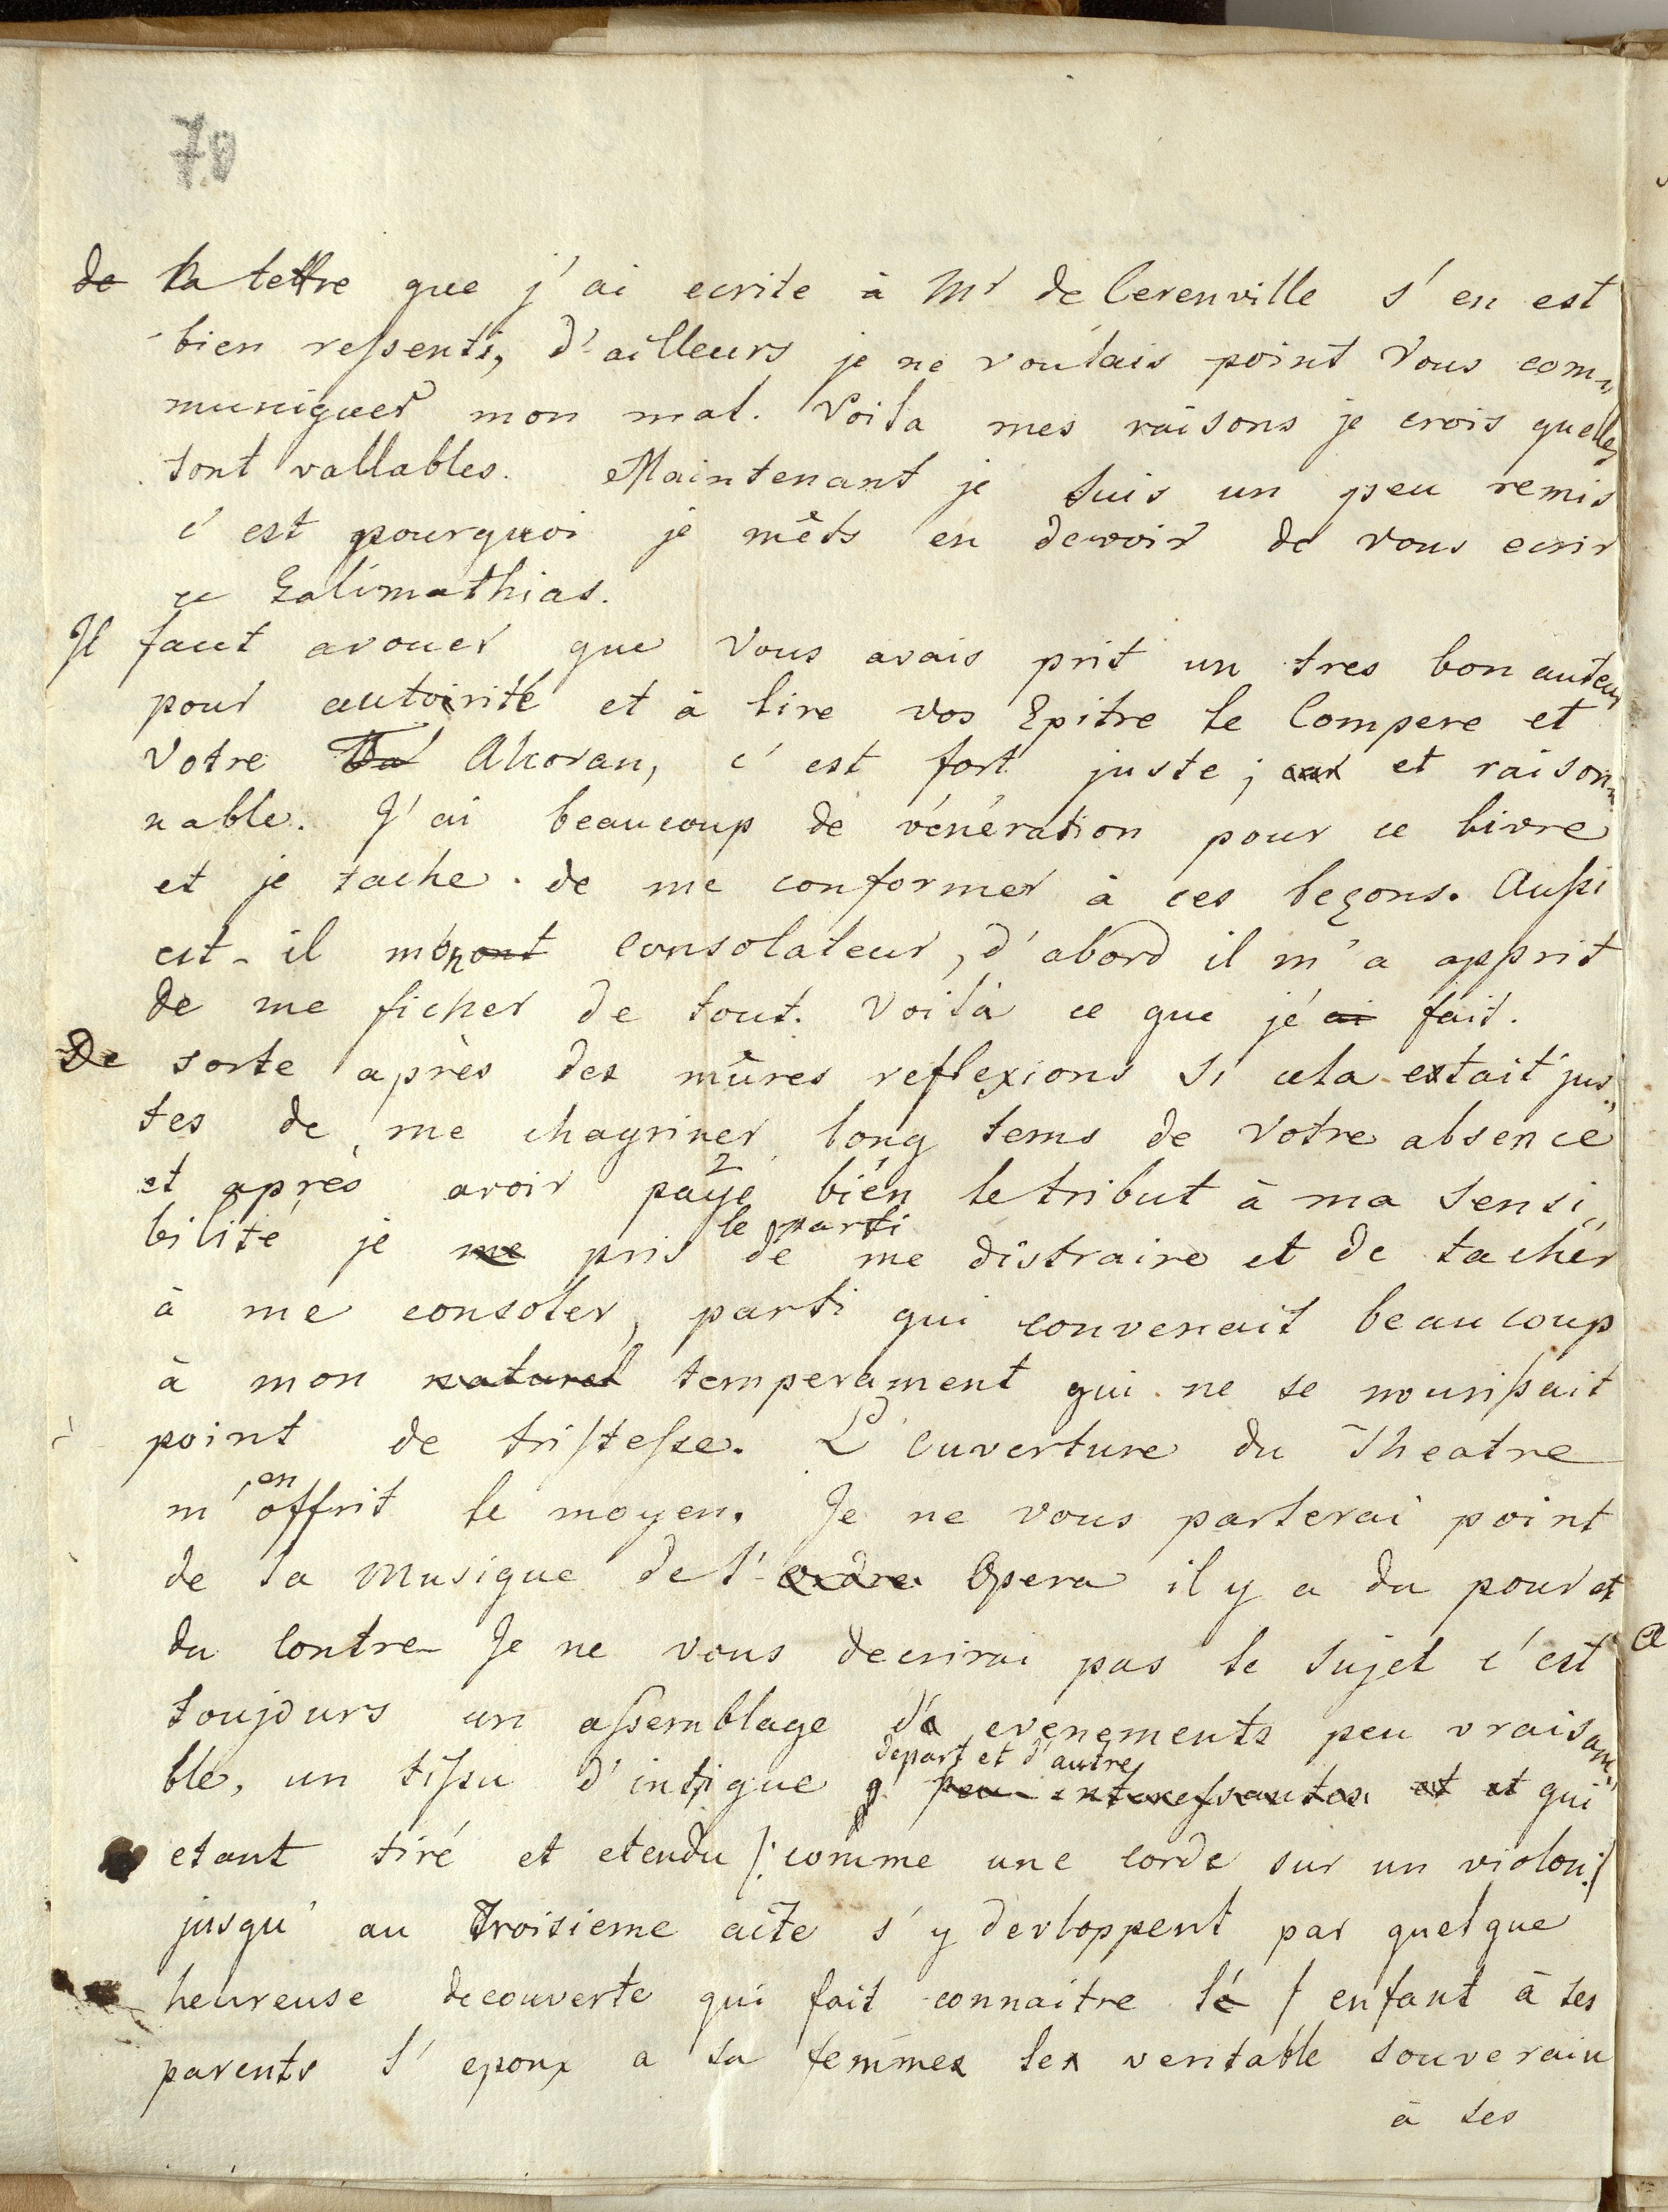 70
de la lettre que j'ai ecrite à Mr de Cerenville s'en est
bien reſsenti, d'ailleurs je ne voulais point vous com„
muniquer mon mal. Voila mes raisons je crois quelles
sont vallables. Maintenant je suis un peu remis
c'est pourquoi je mêts en devoir de vous ecrir
ce Galimathias.
Il faut avouer que vous avais prit un tres bon auteur
pour autorité et à lire vos Epitre le Compere et
votre Alcoran, c'est fort juste; car et raison„
nable. J'ai beaucoup de vénération pour ce livre
et je tache de me conformer à ces leçons. Auſsi
est-il mon consolateur, d'abord il m'a apprit
de me ficher de tout. Voilà ce que jé ai fait.
De sorte après des mûres reflexions si cela était jus„
tes de me chagriner long tems de votre absence
et après avoir payé 2 bién le tribut à ma sensi„
bilité je me pris le parti de me distraire et de tacher
à me consoler, parti qui convenait beaucoup
à mon naturel temperament qui ne se nouriſsait
point de triſteſse. L'ouverture du Theatre
m'en offrit le moyen. Je ne vous parlerai point
de la Musique de l'ordre Opera il y a du pour et
du Contre Je ne vous decrirai pas le sujet c'est
toujours un aſsemblage d'evenements peu vraisam„
ble, un tiſsu d'intrigue depart et d'autre peu intereſsantes et et qui
etant tiré et etendu /: comme une corde sur un violon :/
jusqu'au troisieme acte s'y devloppent par quelque
heureuse decouverte qui fait connaitre lé / enfant à ses
parents l'epoux a sa femme le veritable souverain
à ses